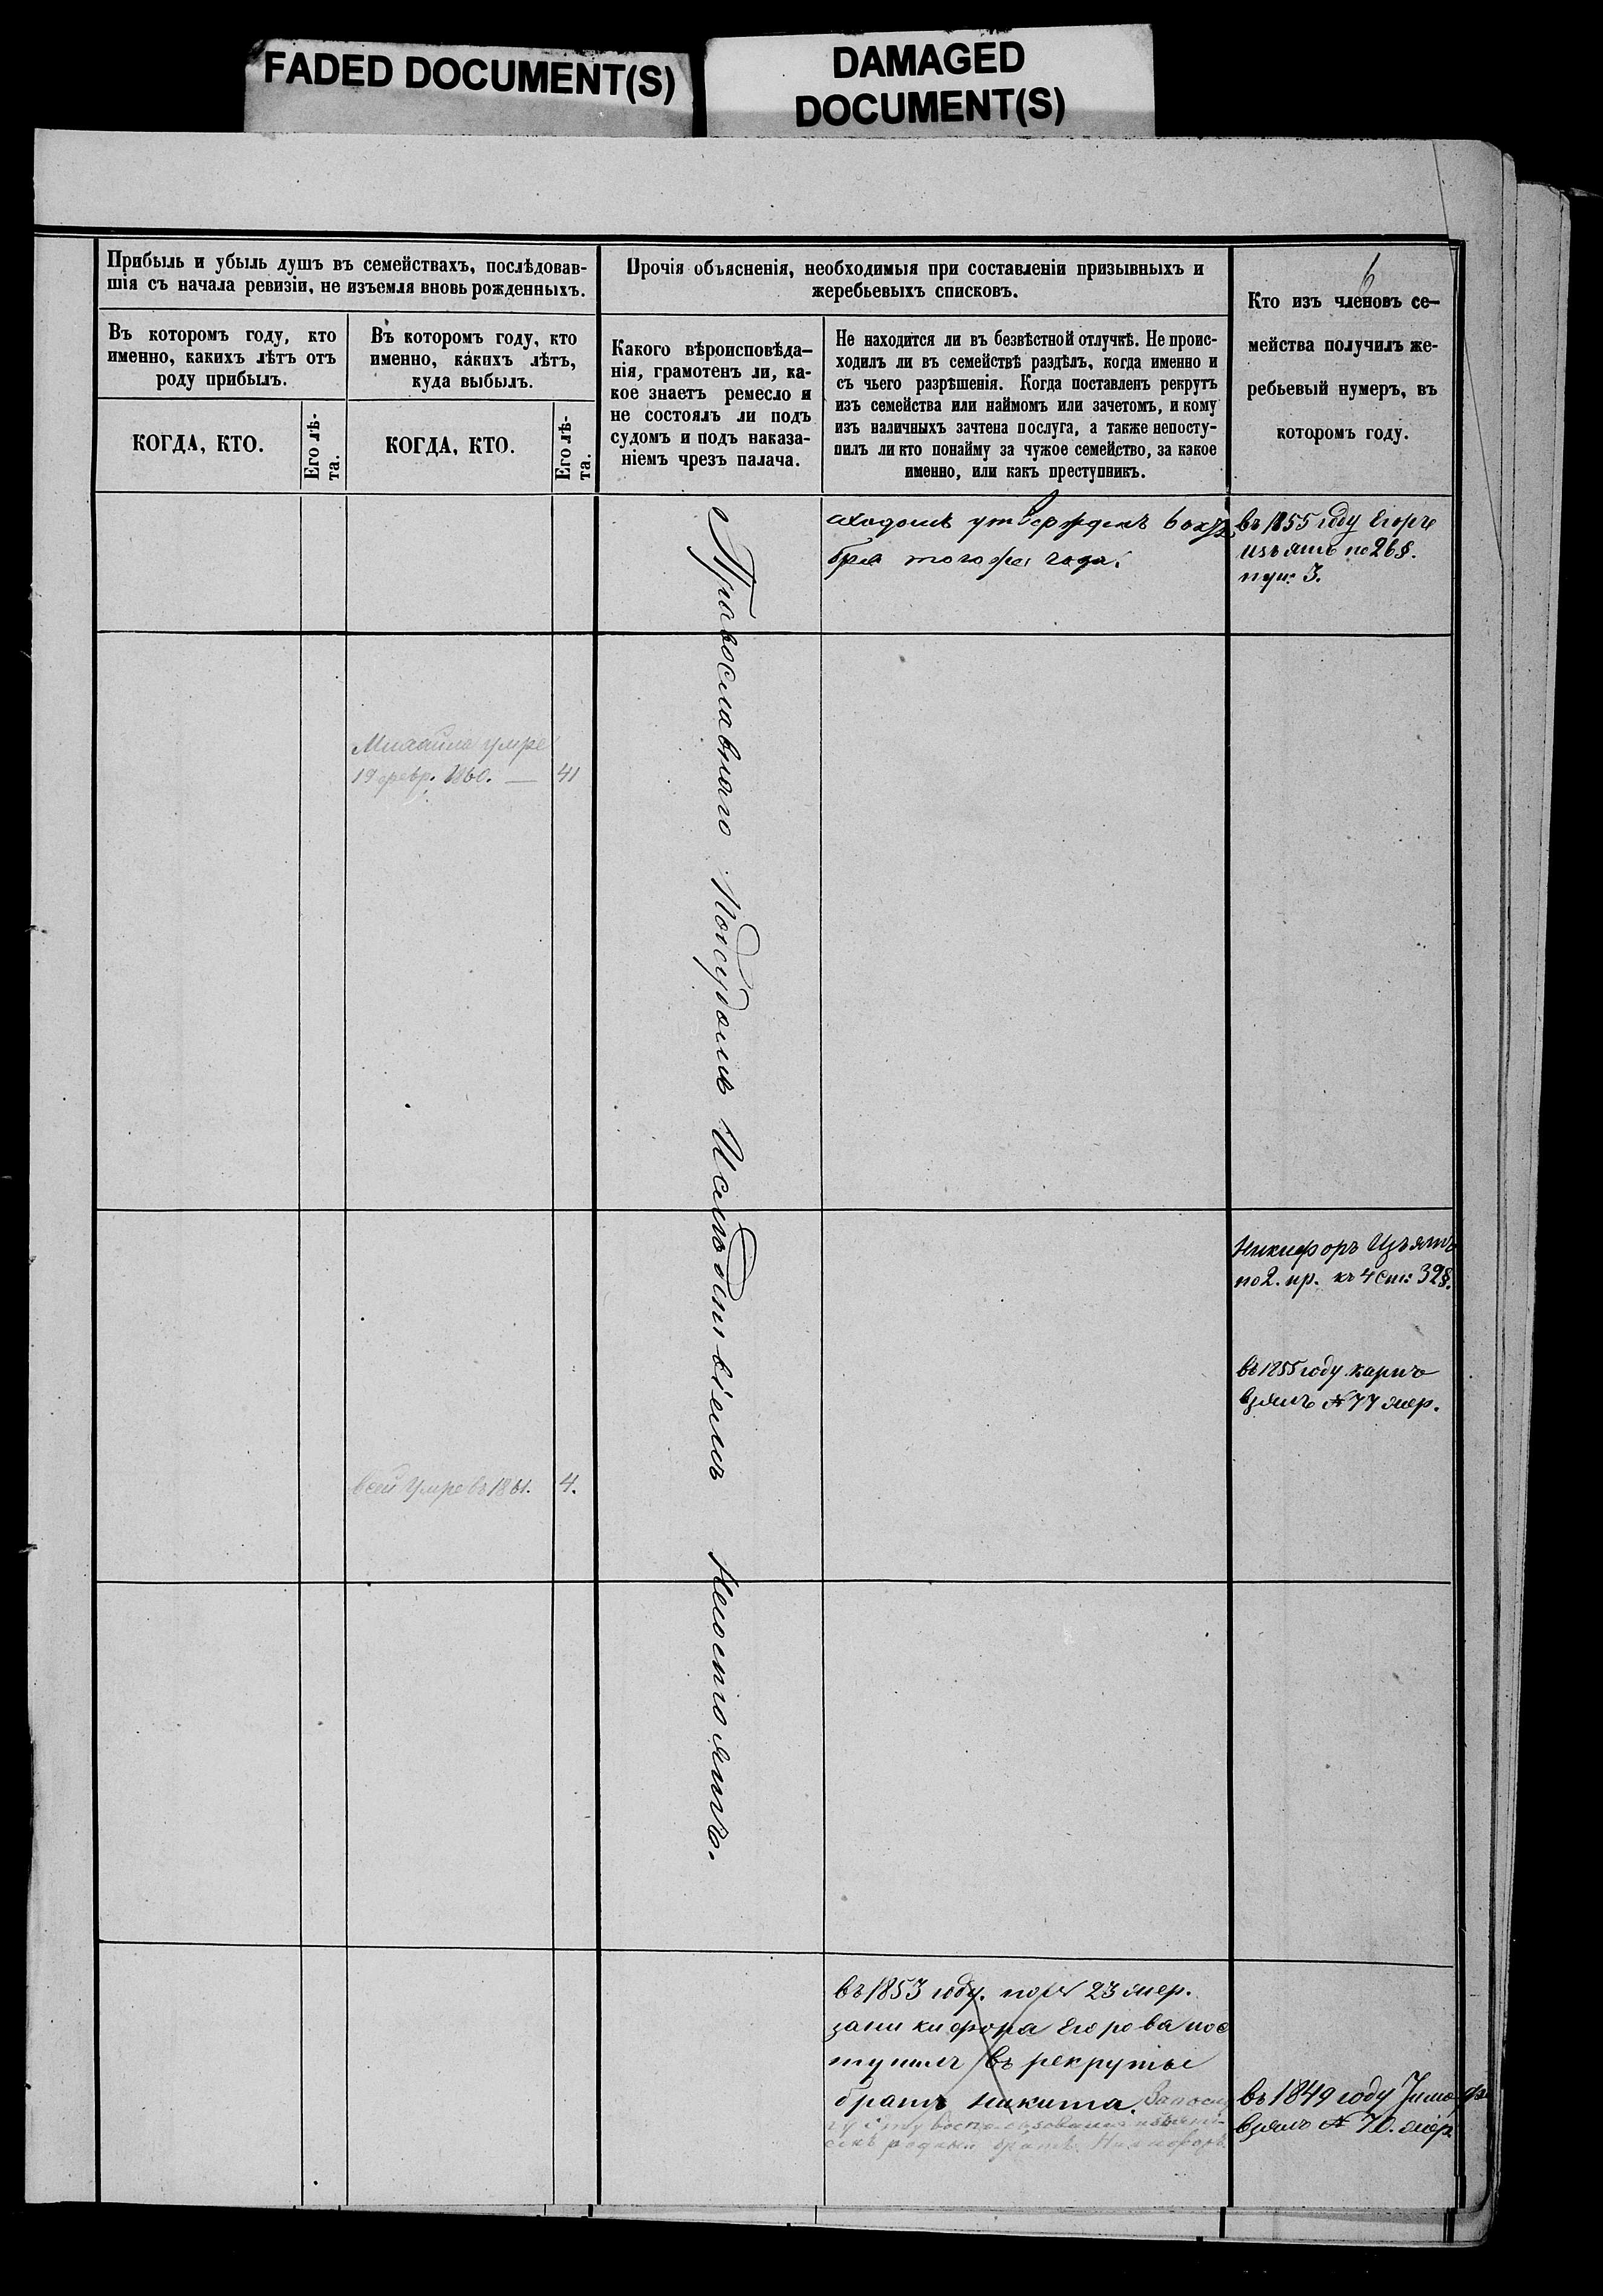 FADED DOCUMENT(S)
DAMAGED
DOCUMENT(S)
6
Прибыль и убыль душъ въ семействахъ, послѣдовав-
шія съ начала ревизіи, не изъемля вновь рожденныхъ.
Въ которомъ году, кто
именно, какихъ лѣтъ отъ
роду прибылъ.
КОГДА, КТО.
Его лѣ-
та.
Въ которомъ году, кто
именно, какихъ лѣтъ,
куда выбылъ.
КОГДА, КТО.
Его лѣ-
та.
Прочія объясненія, необходимыя при составленіи призывныхъ и
жеребьевыхъ списковъ.
Какого вѣроисповѣда-
нія, грамотенъ ли, ка-
кое знаетъ ремесло и
не состоялъ ли подъ
судомъ и подъ наказа-
ніемъ чрезъ палача.
Не находится ли въ безвѣстной отлучкѣ. Не проис-
ходилъ ли въ семействѣ раздѣлъ, когда именно и
съ чьего разрѣшенія. Когда поставленъ рекрутъ
изъ семейства или наймомъ или зачетомъ, и кому
изъ наличныхъ зачтена послуга, а также непосту-
пилъ ли кто понайму за чужое семейство, за какое
именно, или какъ преступникъ.
Кто изъ членовъ се-
мейства получилъ же-
ребьевый нумеръ, въ
которомъ году.
утвержденъ 6
бря тогоже года.
въ 1855 году Егоръ
изъятъ по 26 §.
пун: 3.
Михайла умре
19 февр. 1860. — 41
Православнаго Подсудомъ Несостоялъ.
Никифоръ Изъятъ
по 2. пр. къ 4 ст: 32 §.
въ 1855 году Карпъ
взялъ № 77 жер.
умре въ 1861. 4.
въ 1853 году. по № 23 жер.
за Никифора Егорова пос
тупилъ въ рекруты
братъ Никита.
родный братъ Никифоръ.
въ 1849 году Тимоф
взялъ № 70. жер.